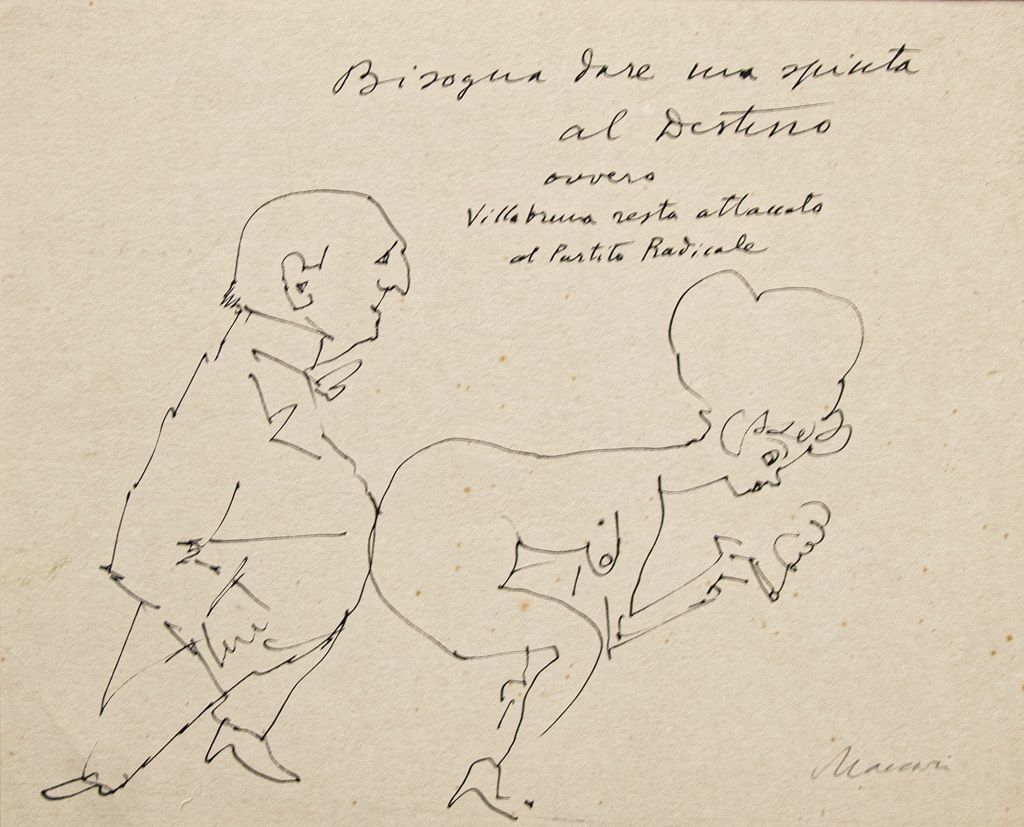 Bisogna dare una spinta
al Destino
ovvero
Villabruna resta attaccato
al Partito Radicale
Maccari